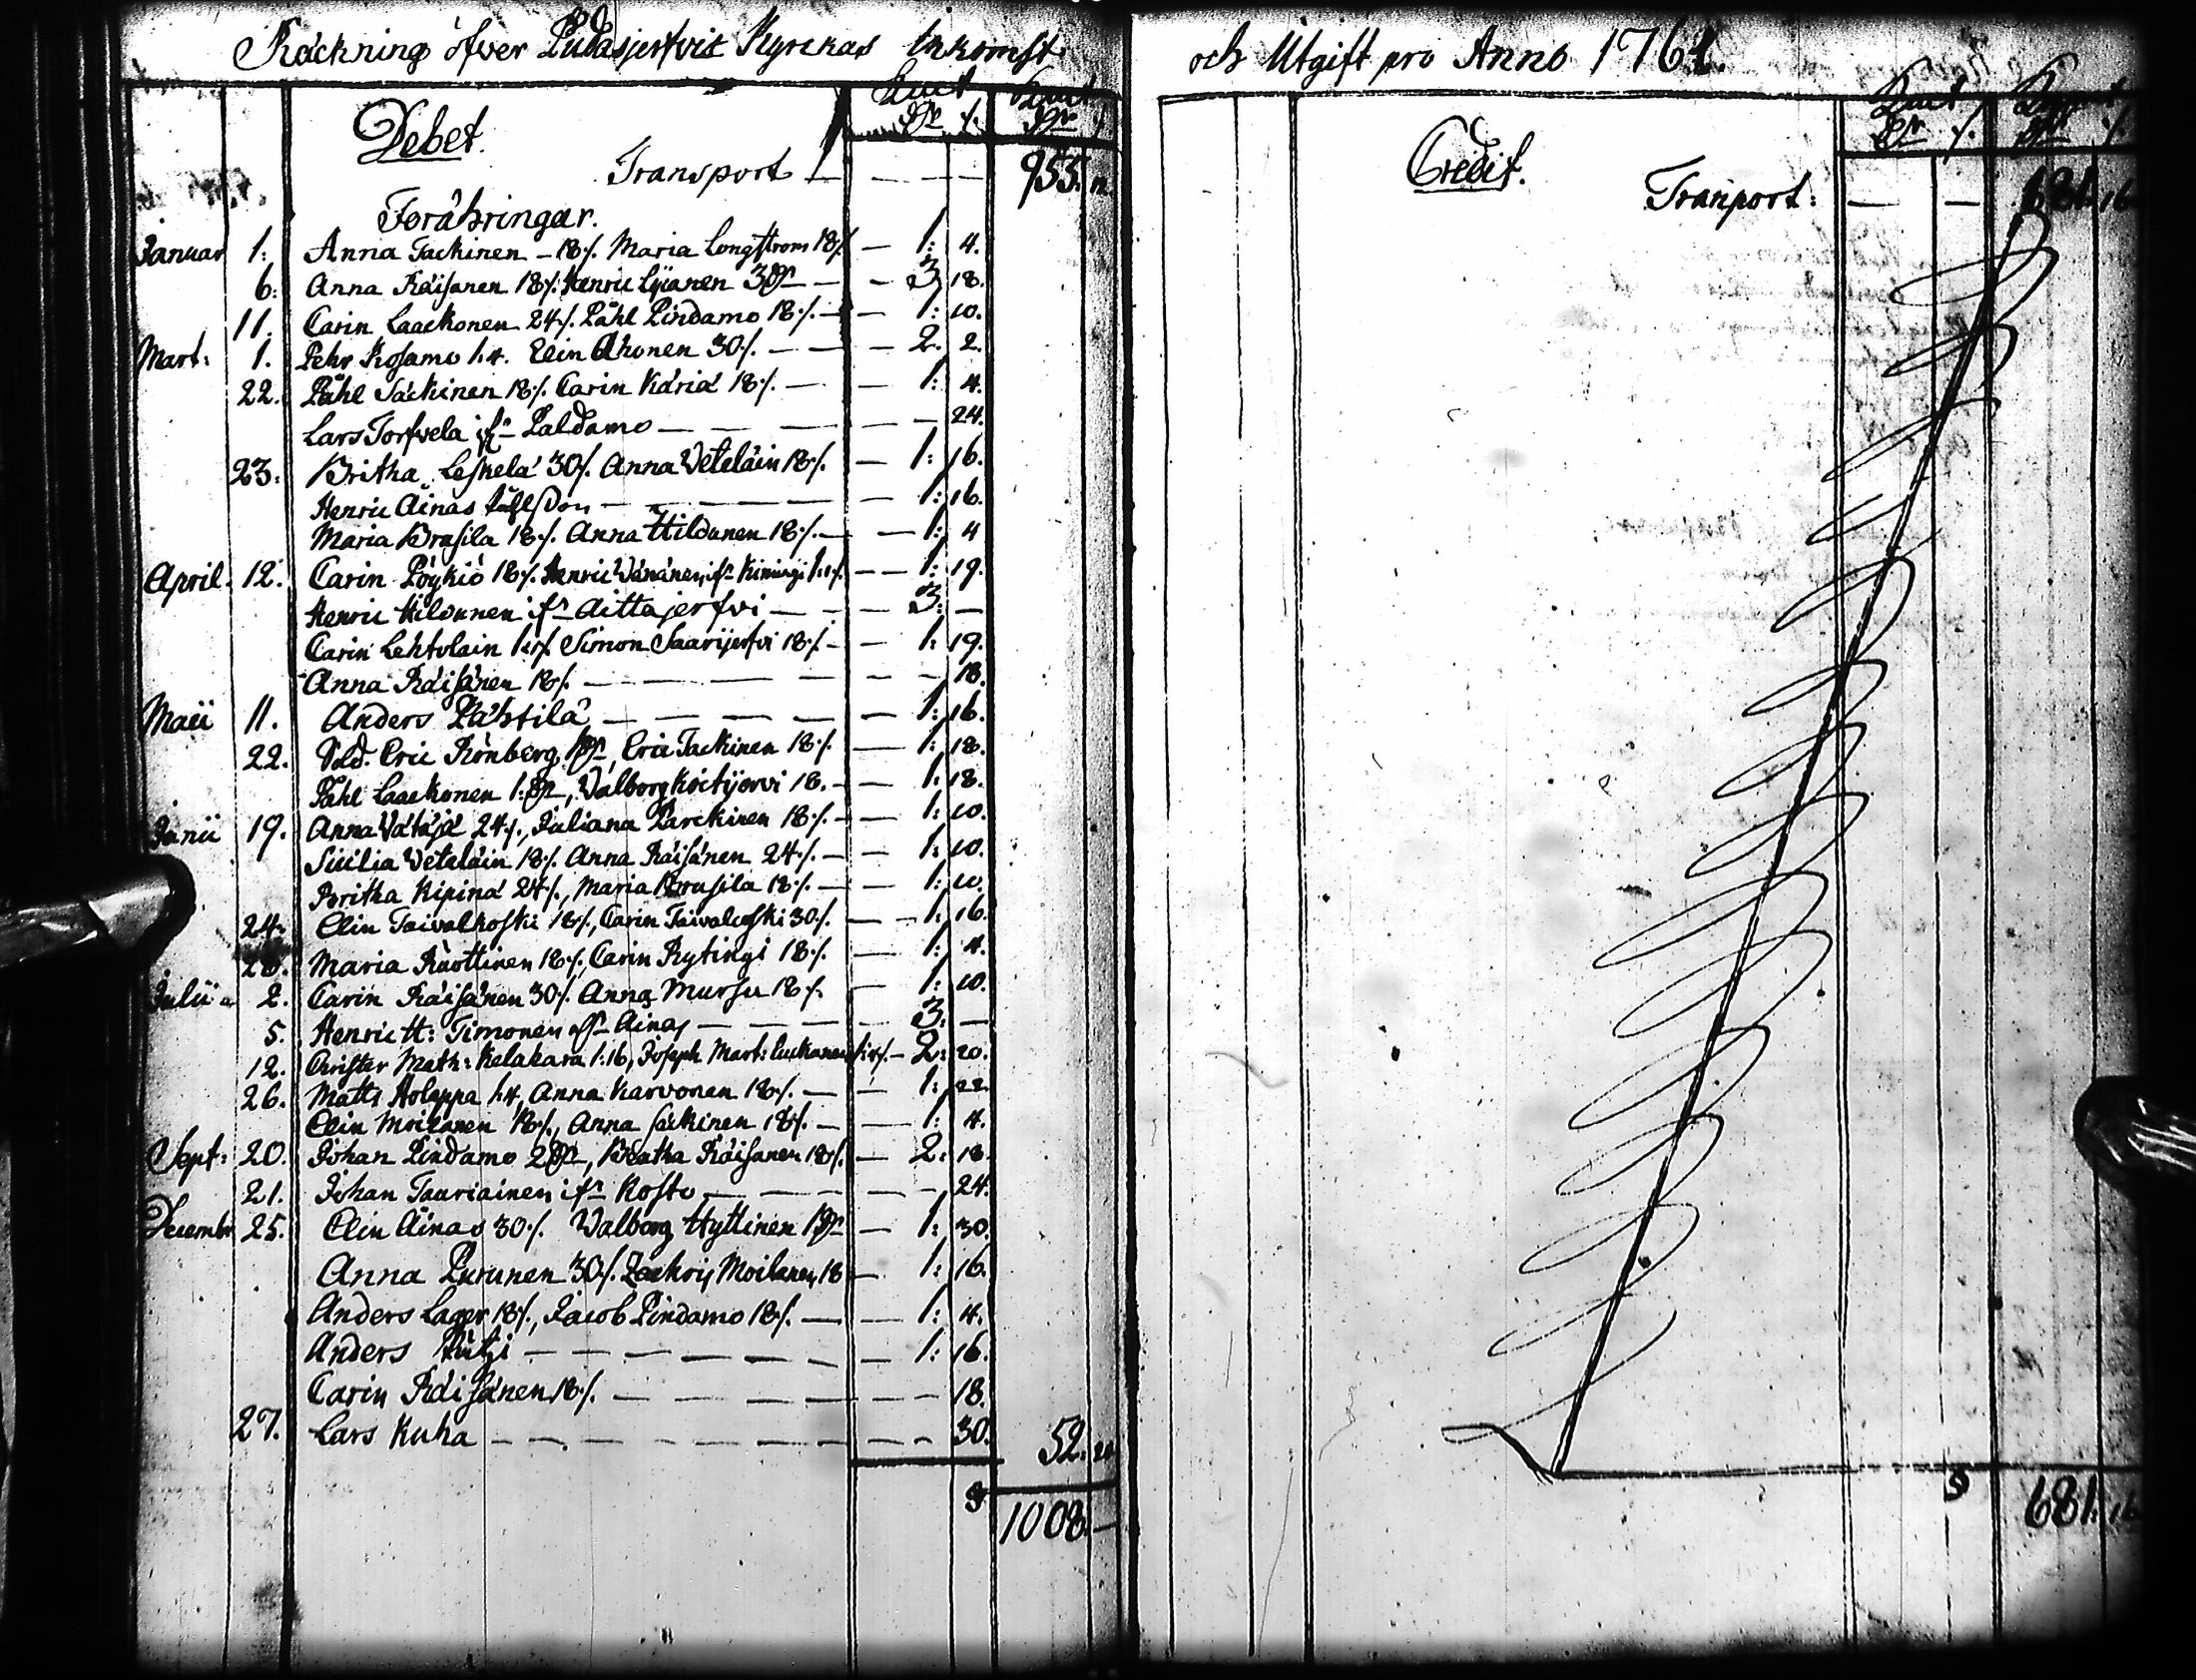 Räckning öfver Pudasjerfvie Kyrckas Inkomst
Debet.
Kmt Kmt
Dr ./. Dr
Transport — — — 955. 12
Förährningar.
Januar 1. Anna Tackinen — 18./. Maria Longstrom 18./. — 1: 4.
6. Anna Räisänen 18./. Henric Lyianen 3 Dr — 3 18.
11. Carin Laackonen 24./. Påhl Pindamo 18./. — 1: 10.
Mart: 1. Pehr Kosamo 1.4. Elin Ahonen 30./. — — 2. 2.
22. Påhl Säckinen 18./. Carin Käriä 18./. — 1: 4.
Lars Torfvela if:n Paldamo — — — 24.
23. Britha Leskelä 30./. Anna Veteläin 18./. — 1: 16.
Henric Ainas Påhlsson — — — 1: 16.
Maria Brusila 18./. Anna Hildunen 18./. — 1: 4
April. 12. Carin Pöykiö 18./. Henric Wänänen if:n Kimingi 1:1./. — 1: 19.
Henric Hildunen if:n Aittajerfvi — — 3: —
Carin Lehtolain 1:1./. Simon Saarijerfvi 18./. — 1: 19.
Anna Räisänen 18./. — — — 18.
Maii 11. Anders Pähtilä — — — 1: 16.
22. Sold. Eric Rönberg 1 Dr, Eric Tackinen 18./. — 1: 18.
Påhl Laackonen 1: Dr, Walborg Koitijervi 18. — 1: 18.
Junii 19. Anna Wätäjä 24./., Juliana Parckinen 18./. — 1: 10.
Sicilia Veteläin 18./. Anna Räisänen 24./. — 1: 10.
Britha Kipinä 24./., Maria Brusila 18./. — 1: 10.
24. Elin Taivalkoski 18./., Carin Taivalkoski 30./. — 1: 16.
28. Maria Ruottinen 18./., Carin Rytingi 18./. — 1: 4.
Julii 2. Carin Räisänen 30./. Anna Mursu 18./. — 1: 10.
5. Henric H: Timonen if:n Ainas — — — 3: —
12. Christer Math: Kelakara 1:16, Joseph Mart: Luckanen 1:4./. — 2: 20.
26. Matts Holappa 1.4, Anna Karvonen 18./. — 1: 22.
Elin Moilanen 18./., Anna Säckinen 18./. — 1: 4.
Sept: 20. Johan Pindamo 2 Dr, Beatha Räisänen 18./. — 2: 18.
21. Johan Tauriainen if:n Kosto — — — 24.
Decembr 25. Elin Ainas 30./. Walborg Hyttinen 1 Dr — 1: 30.
Anna Purunen 30./. Zachris Moilanen 18 — 1: 16.
Anders Lager 18./., Jacob Pindamo 18./. — 1: 4.
Anders — — — 1: 16.
Carin Räisänen 18./. — — — 18.
27. Lars Kuha — — — 30. 52. 20
S 1008. —
och Utgift pro Anno 1761.
Credit.
Dr ./. Dr ./.
Transport: — — 681. 16
S 681: 16